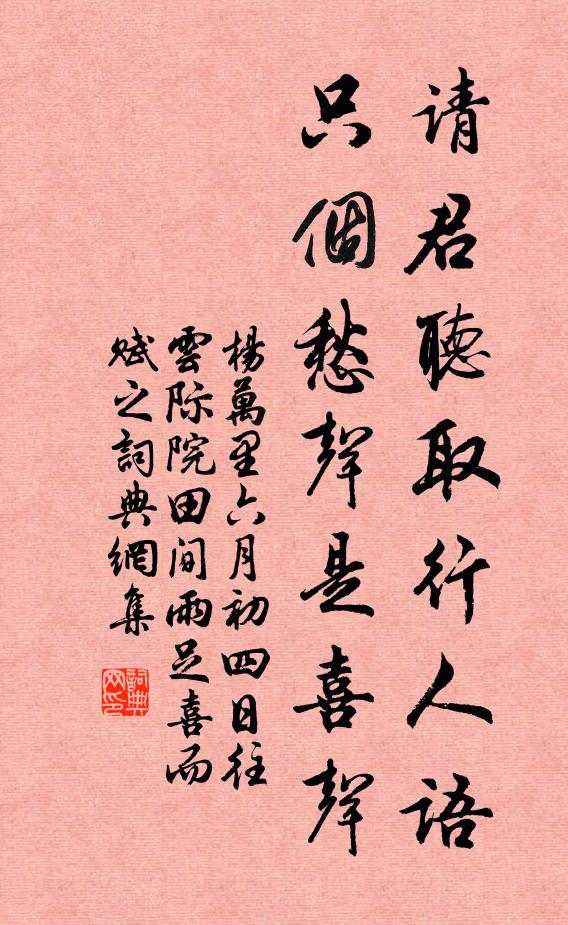 请君聽取行人語
只個愁聲是喜聲
楊萬里六月初四日往
雲际院田间雨足喜而
赋之詞典網集
詞典网印